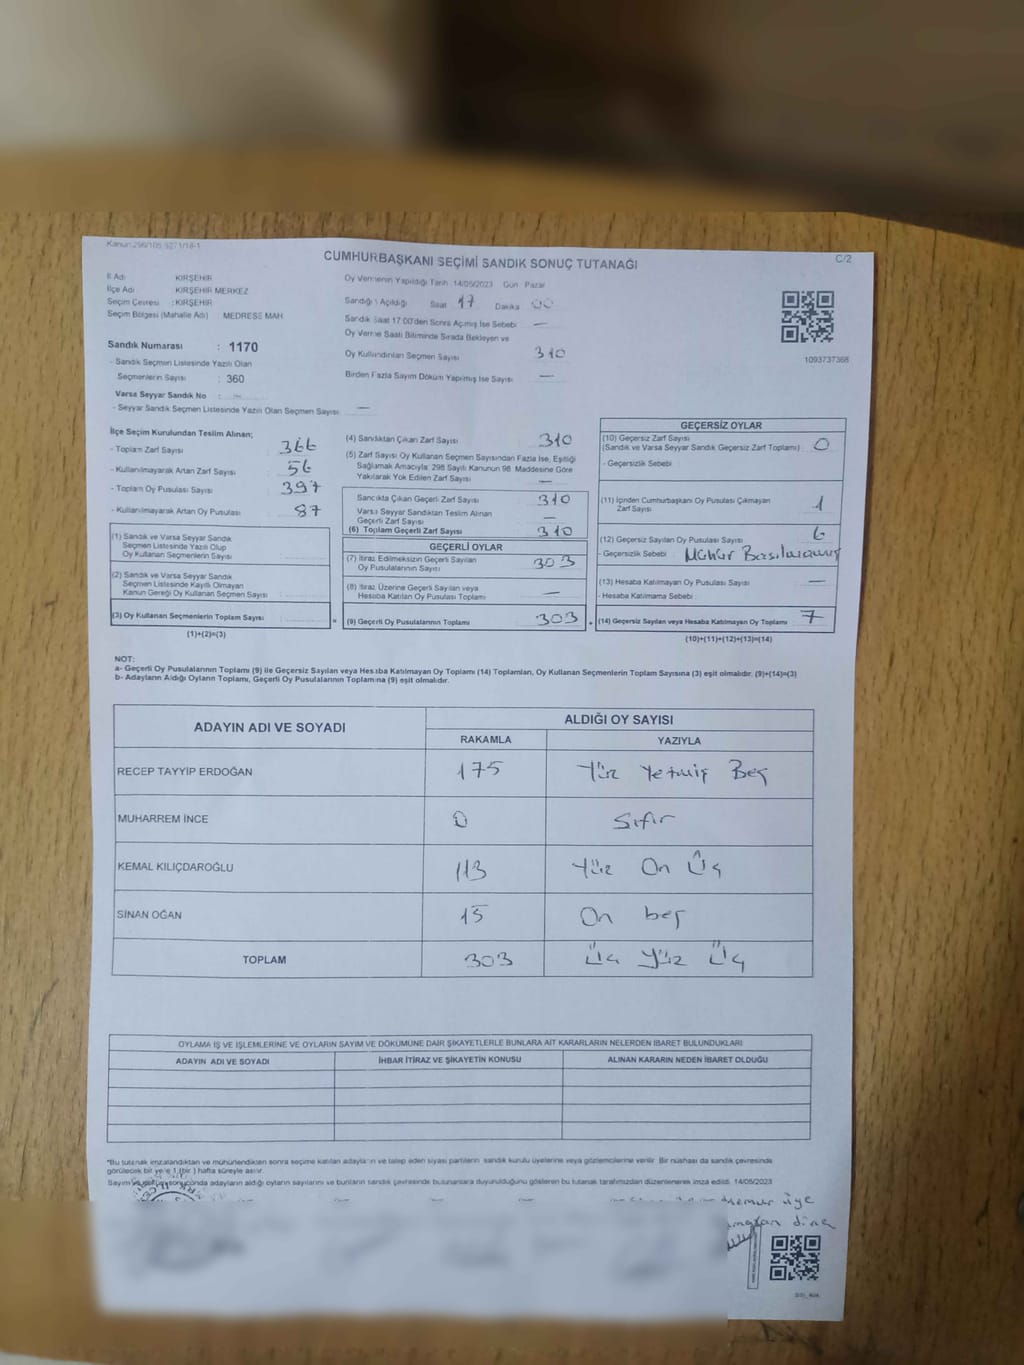 Kanun:296/105,5271/18-1
C/2
CUMHURBAŞKANI SEÇİMİ SANDIK SONUÇ TUTANAĞI
İl Adı KIRŞEHİR
İlçe Adı KIRŞEHİR MERKEZ
Seçim Çevresi : KIRŞEHİR
Seçim Bölgesi (Mahalle Adı) MEDRESE MAH.
Sandık Numarası : 1170
- Sandık Seçmen Listesinde Yazılı Olan
Seçmenlerin Sayısı : 360
Varsa Seyyar Sandık No : —
- Seyyar Sandık Seçmen Listesinde Yazılı Olan Seçmen Sayısı —
Oy Vermenin Yapıldığı Tarih 14/05/2023 Gün Pazar
Sandığın Açıldığı Saat 17 Dakika 00
Sandık Saat 17:00'den Sonra Açılmış İse Sebebi —
Oy Verme Saati Bitiminde Sırada Bekleyen ve
Oy Kullandırılan Seçmen Sayısı 310
Birden Fazla Sayım Döküm Yapılmış İse Sayısı —
1093737368
İlçe Seçim Kurulundan Teslim Alınan;
- Toplam Zarf Sayısı 366
- Kullanılmayarak Artan Zarf Sayısı 56
- Toplam Oy Pusulası Sayısı 397
- Kullanılmayarak Artan Oy Pusulası 87
(1) Sandık ve Varsa Seyyar Sandık
Seçmen Listesinde Yazılı Olup
Oy Kullanan Seçmenlerin Sayısı
(2) Sandık ve Varsa Seyyar Sandık
Seçmen Listesinde Kayıtlı Olmayan
Kanun Gereği Oy Kullanan Seçmen Sayısı :
(3) Oy Kullanan Seçmenlerin Toplam Sayısı =
(1)+(2)=(3)
(4) Sandıktan Çıkan Zarf Sayısı 310
(5) Zarf Sayısı Oy Kullanan Seçmen Sayısından Fazla İse, Eşitliği
Sağlamak Amacıyla; 298 Sayılı Kanunun 98. Maddesine Göre
Yakılarak Yok Edilen Zarf Sayısı —
Sandıkta Çıkan Geçerli Zarf Sayısı 310
Varsa Seyyar Sandıktan Teslim Alınan
Geçerli Zarf Sayısı —
(6) Toplam Geçerli Zarf Sayısı 310
GEÇERLİ OYLAR
(7) İtiraz Edilmeksizin Geçerli Sayılan
Oy Pusulalarının Sayısı 303
(8) İtiraz Üzerine Geçerli Sayılan veya
Hesaba Katılan Oy Pusulası Toplamı —
(9) Geçerli Oy Pusulalarının Toplamı 303 +
GEÇERSİZ OYLAR
(10) Geçersiz Zarf Sayısı
(Sandık ve Varsa Seyyar Sandık Geçersiz Zarf Toplamı) : 0
- Geçersizlik Sebebi :
(11) İçinden Cumhurbaşkanı Oy Pusulası Çıkmayan
Zarf Sayısı 1
(12) Geçersiz Sayılan Oy Pusulası Sayısı 6
- Geçersizlik Sebebi : Mühür Basılmamış
(13) Hesaba Katılmayan Oy Pusulası Sayısı —
- Hesaba Katılmama Sebebi :
(14) Geçersiz Sayılan veya Hesaba Katılmayan Oy Toplamı 7
(10)+(11)+(12)+(13)=(14)
NOT:
a- Geçerli Oy Pusulalarının Toplamı (9) ile Geçersiz Sayılan veya Hesaba Katılmayan Oy Toplamı (14) Toplamları, Oy Kullanan Seçmenlerin Toplam Sayısına (3) eşit olmalıdır. (9)+(14)=(3)
b- Adayların Aldığı Oyların Toplamı, Geçerli Oy Pusulalarının Toplamına (9) eşit olmalıdır.
ADAYIN ADI VE SOYADI ALDIĞI OY SAYISI
RAKAMLA YAZIYLA
RECEP TAYYİP ERDOĞAN 175 Yüz Yetmiş Beş
MUHARREM İNCE 0 Sıfır
KEMAL KILIÇDAROĞLU 113 Yüz On Üç
SİNAN OĞAN 15 On beş
TOPLAM 303 Üç Yüz Üç
OYLAMA İŞ VE İŞLEMLERİNE VE OYLARIN SAYIM VE DÖKÜMÜNE DAİR ŞİKAYETLERLE BUNLARA AİT KARARLARIN NELERDEN İBARET BULUNDUKLARI
ADAYIN ADI VE SOYADI İHBAR İTİRAZ VE ŞİKAYETİN KONUSU ALINAN KARARIN NEDEN İBARET OLDUĞU
*Bu tutanak imzalandıktan ve mühürlendikten sonra seçime katılan adayların ve talep eden siyasi partilerin sandık kurulu üyelerine veya gözlemcilerine verilir. Bir nüshası da sandık çevresinde
görülecek bir yere 1 (bir ) hafta süreyle asılır.
Sayım ve döküm sonucunda adayların aldığı oyların sayılarını ve bunların sandık çevresinde bulunanlara duyurulduğunu gösteren bu tutanak tarafımızdan düzenlenerek imza edildi. 14/05/2023
memur üye